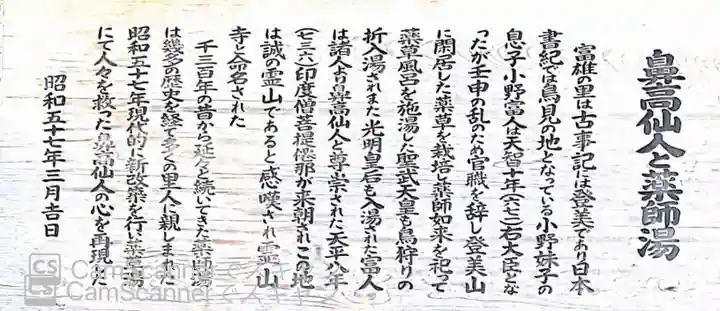 鼻高仙人と薬師湯
富雄の里は古事記には登美であり日本
書紀には鳥見の地となっている小野妹子の
息子小野富人は天智十年(六七二)右大臣とな
ったが壬申の乱のため官職を辞し登美山
に閑居した薬草を栽培し薬師如来を祀って
薬草風呂を施湯した聖武天皇も鳥狩りの
折入湯されまた光明皇后も入湯された富人
は諸人より鼻高仙人と尊崇された天平八年
(七三六)印度僧菩提僊那が来朝されこの地
は誠の霊山であると感嘆され霊山
寺と命名された
千三百年の昔から延々と続いてきた薬師湯
は幾多の歴史を経て多くの里人に親しまれた
昭和五十七年現代的に新改築を行い薬草湯
にて人々を救った鼻高仙人の心を再現した
昭和五十七年三月吉日
CS CamScanner でスキャン
CS CamScanner でスキャン